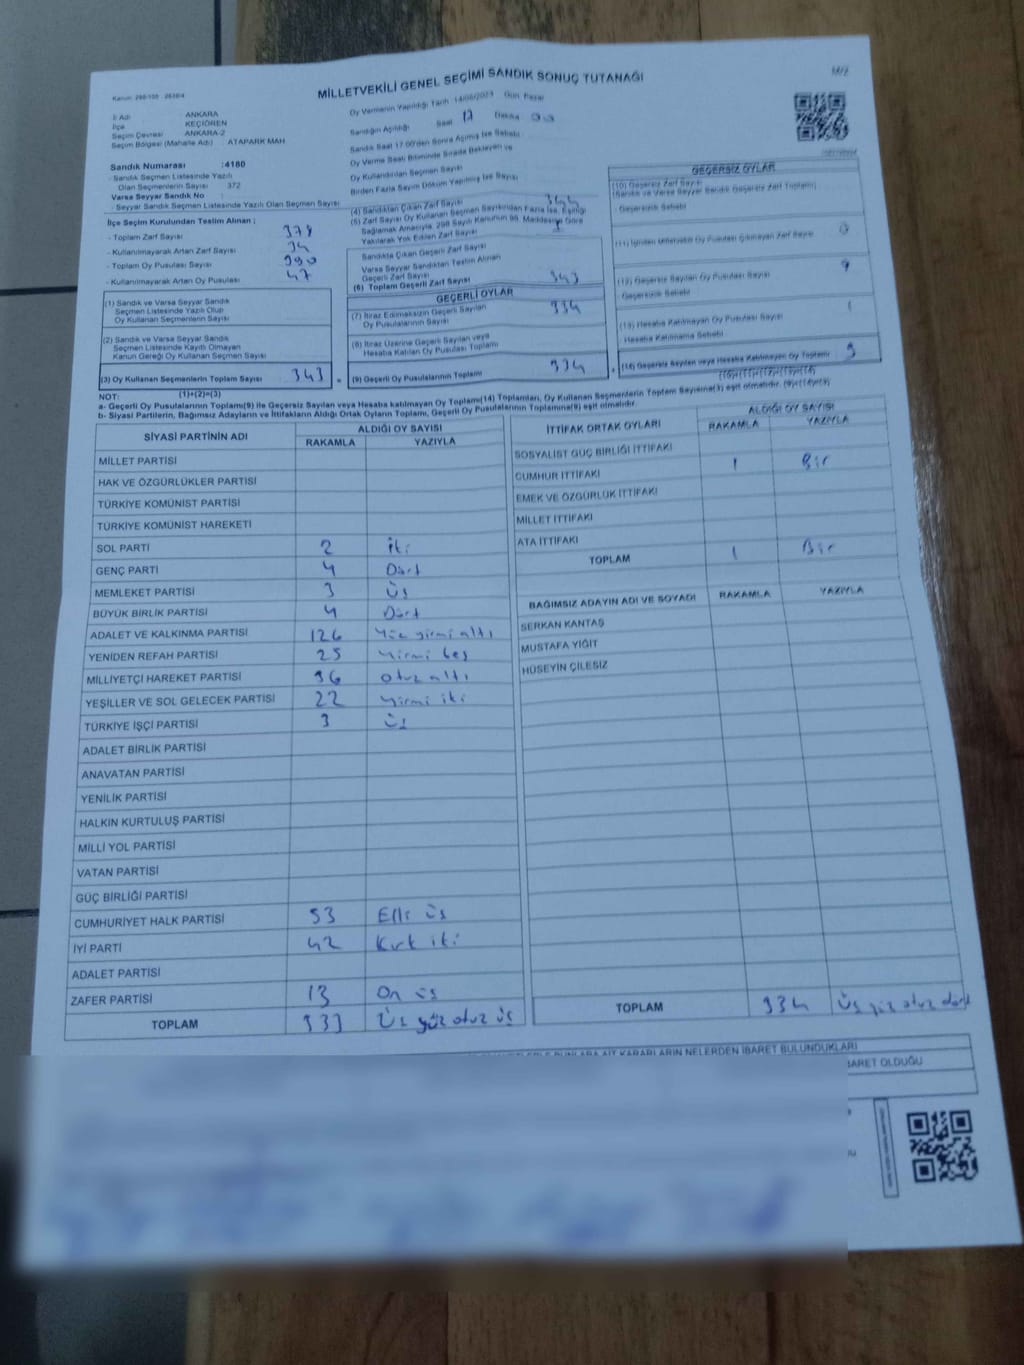 MİLLETVEKİLİ GENEL SEÇİMİ SANDIK SONUÇ TUTANAĞI
İl Adı ANKARA
İlçe KEÇİÖREN
Seçim Çevresi ANKARA-2
Seçim Bölgesi (Mahalle Adı) ATAPARK MAH
Sandık Numarası :4180
- Sandık Seçmen Listesinde Yazılı
Olan Seçmenlerin Sayısı 372
Varsa Seyyar Sandık No
- Seyyar Sandık Seçmen Listesinde Yazılı Olan Seçmen Sayısı
Oy Vermenin Yapıldığı Tarih 14/05/2023 Gün Pazar
Sandığın Açıldığı Saat 17 Dakika 00
Sandık Saat 17.00'den Sonra Açılmış İse Sebebi
Oy Verme Saati Bitiminde Sırada Bekleyen ve
Oy Kullandırılan Seçmen Sayısı
Birden Fazla Sayım Döküm Yapılmış İse Sayısı
İlçe Seçim Kurulundan Teslim Alınan :
- Toplam Zarf Sayısı
- Kullanılmayarak Artan Zarf Sayısı
- Toplam Oy Pusulası Sayısı 390
- Kullanılmayarak Artan Oy Pusulası 47
(1) Sandık ve Varsa Seyyar Sandık
Seçmen Listesinde Yazılı Olup
Oy Kullanan Seçmenlerin Sayısı
(2) Sandık ve Varsa Seyyar Sandık
Seçmen Listesinde Kayıtlı Olmayan
Kanun Gereği Oy Kullanan Seçmen Sayısı
(3) Oy Kullanan Seçmenlerin Toplam Sayısı 343
(4) Sandıktan Çıkan Zarf Sayısı 344
(5) Zarf Sayısı Oy Kullanan Seçmen Sayısından Fazla İse, Eşitliği
Sağlamak Amacıyla, 298 Sayılı Kanunun 98. Maddesine Göre
Yakılarak Yok Edilen Zarf Sayısı 1
Sandıkta Çıkan Geçerli Zarf Sayısı
Varsa Seyyar Sandıktan Teslim Alınan
Geçerli Zarf Sayısı
(6) Toplam Geçerli Zarf Sayısı 343
GEÇERLİ OYLAR
(7) İtiraz Edilmeksizin Geçerli Sayılan
Oy Pusulalarının Sayısı 334
(8) İtiraz Üzerine Geçerli Sayılan veya
Hesaba Katılan Oy Pusulası Toplamı
(9) Geçerli Oy Pusulalarının Toplamı 334
GEÇERSİZ OYLAR
(10) Geçersiz Zarf Sayısı
(Sandık ve Varsa Seyyar Sandık Geçersiz Zarf Toplamı)
Geçersizlik Sebebi
(12) Geçersiz Sayılan Oy Pusulası Sayısı
Geçersizlik Sebebi
(13) Hesaba Katılmayan Oy Pusulası Sayısı
Hesaba Katılmama Sebebi
(14) Geçersiz Sayılan veya Hesaba Katılmayan Oy Toplamı 9
(10)+(11)+(12)+(13)=(14)
NOT: (1)+(2)=(3)
a- Geçerli Oy Pusulalarının Toplamı(9) ile Geçersiz Sayılan veya Hesaba katılmayan Oy Toplamı(14) Toplamları, Oy Kullanan Seçmenlerin Toplam Sayısına(3) eşit olmalıdır. (9)+(14)=(3)
b- Siyasi Partilerin, Bağımsız Adayların ve İttifakların Aldığı Ortak Oyların Toplamı, Geçerli Oy Pusulalarının Toplamına(9) eşit olmalıdır.
SİYASİ PARTİNİN ADI ALDIĞI OY SAYISI
RAKAMLA YAZIYLA
MİLLET PARTİSİ
HAK VE ÖZGÜRLÜKLER PARTİSİ
TÜRKİYE KOMÜNİST PARTİSİ
TÜRKİYE KOMÜNİST HAREKETİ
SOL PARTİ 2 iki
GENÇ PARTİ 4 Dört
MEMLEKET PARTİSİ 3 Üç
BÜYÜK BİRLİK PARTİSİ 4 Dört
ADALET VE KALKINMA PARTİSİ 126 Yüz yirmi altı
YENİDEN REFAH PARTİSİ 25 Yirmi beş
MİLLİYETÇİ HAREKET PARTİSİ 36 otuz altı
YEŞİLLER VE SOL GELECEK PARTİSİ 22 Yirmi iki
TÜRKİYE İŞÇİ PARTİSİ 3 Üç
ADALET BİRLİK PARTİSİ
ANAVATAN PARTİSİ
YENİLİK PARTİSİ
HALKIN KURTULUŞ PARTİSİ
MİLLİ YOL PARTİSİ
VATAN PARTİSİ
GÜÇ BİRLİĞİ PARTİSİ
CUMHURİYET HALK PARTİSİ 53 Elli üç
İYİ PARTİ 42 Kırk iki
ADALET PARTİSİ
ZAFER PARTİSİ 13 On üç
TOPLAM 333 Üç yüz otuz üç
İTTİFAK ORTAK OYLARI ALDIĞI OY SAYISI
RAKAMLA YAZIYLA
SOSYALİST GÜÇ BİRLİĞİ İTTİFAKI
CUMHUR İTTİFAKI 1 Bir
EMEK VE ÖZGÜRLÜK İTTİFAKI
MİLLET İTTİFAKI
ATA İTTİFAKI
TOPLAM 1 Bir
BAĞIMSIZ ADAYIN ADI VE SOYADI RAKAMLA YAZIYLA
SERKAN KANTAŞ
MUSTAFA YİĞİT
HÜSEYİN ÇİLESİZ
TOPLAM 334 Üç yüz otuz dört
KARARLARIN NELERDEN İBARET BULUNDUKLARI